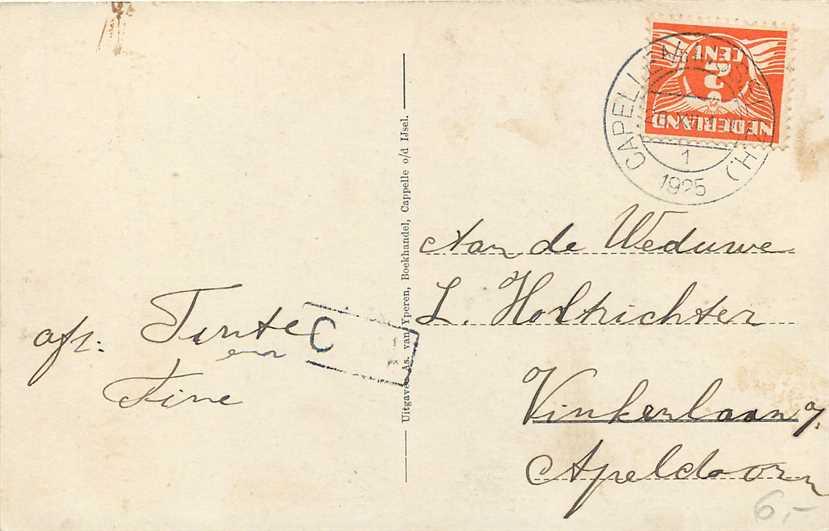 afz: Tante
en
Fine
C
Uitgave: As. van Yperen, Boekhandel, Cappelle o/d IJsel.
CENT
NEDERLAND
CAPELLE
1
1925
Aan de Weduwe
L. Holtrichter
Vinkenlaan 7.
Apeldoorn
6,-